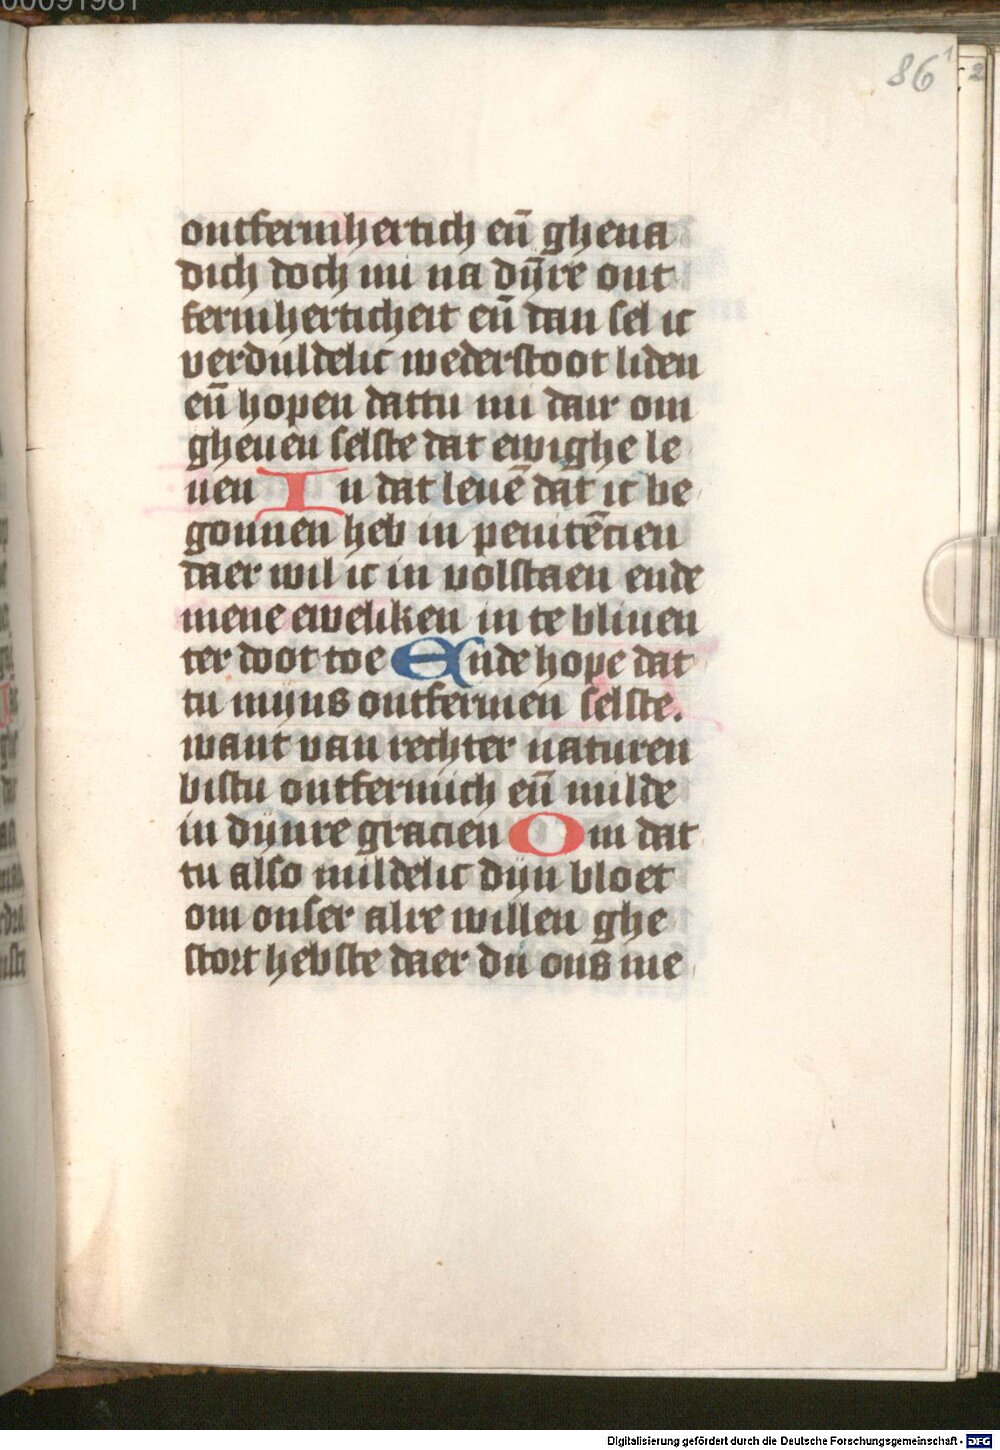 00091981
86
2
ontfermhertich eñ ghena
dich doch mi na dyñre ont
fermherticheit eñ dan sel ic
verduldelic wederstoot liden
eñ hopen dattu mi dair om
gheuen selste dat ewighe le
uen In dat leuē dat ic be
gonnen heb in penitēcien
daer wil ic in volstaen ende
mene eweliken in te bliuen
ter doot toe Ende hope dat
tu mijns ontfermen selste.
want van rechter naturen
bistu ontfermich eñ milde
in dijnre gracien Om dat
tu also mildelic dijn bloet
om onser alre willen ghe
stort hebste daer du ons me
Digitalisierung gefördert durch die Deutsche Forschungsgemeinschaft - DFG